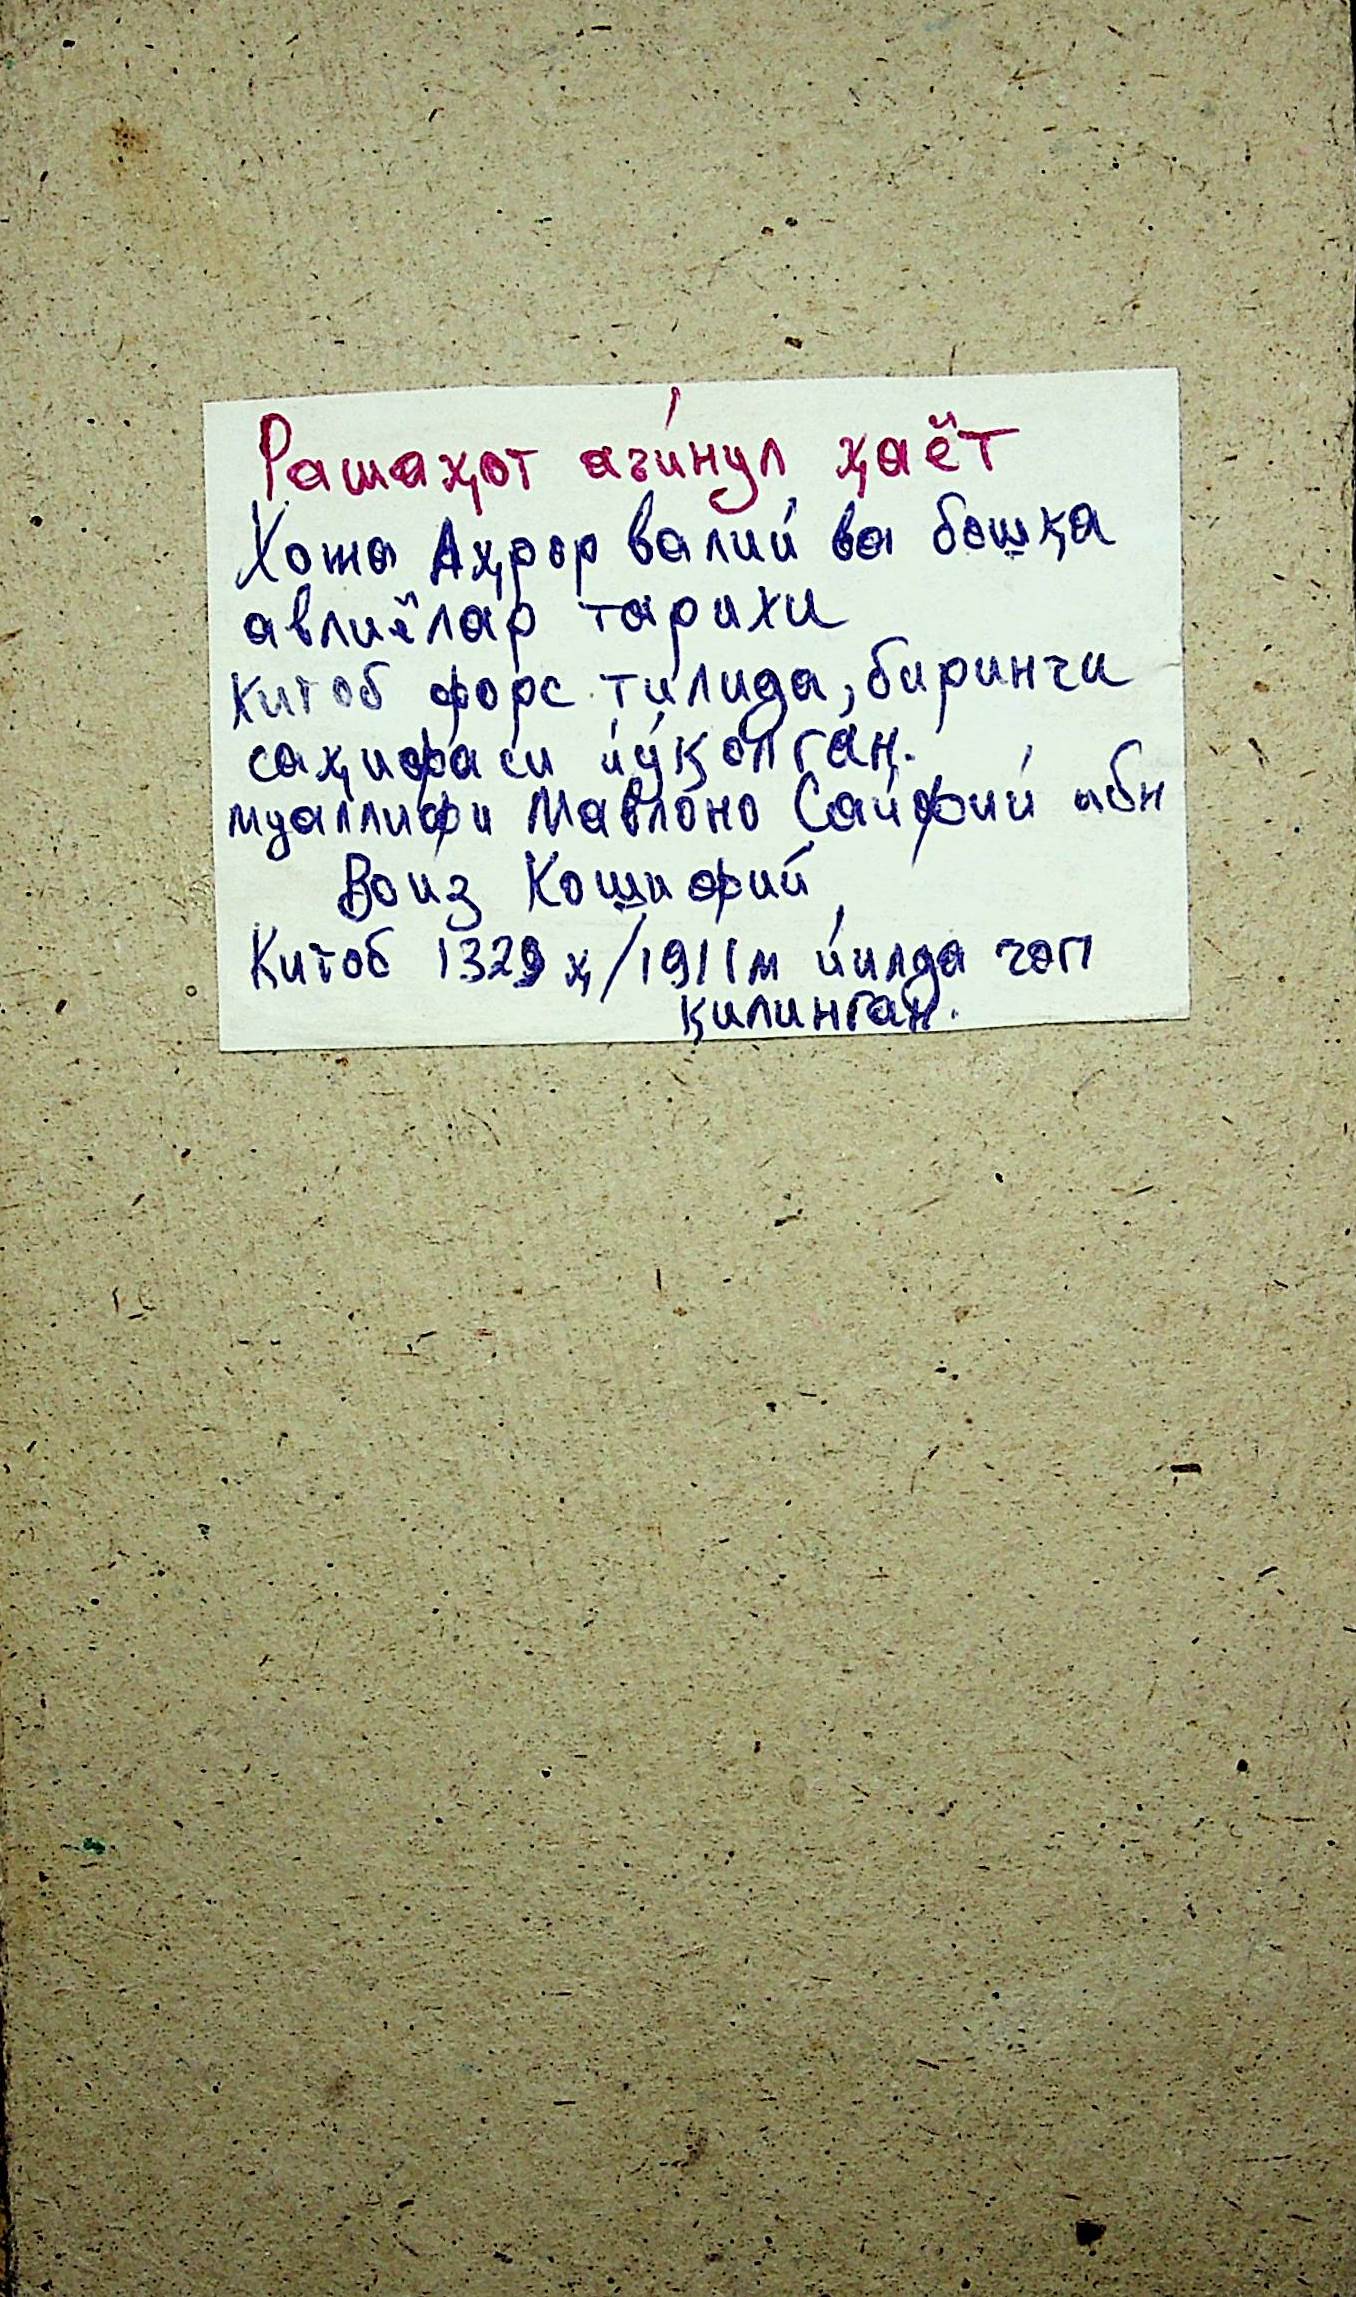 Рашаҳот айинул ҳаёт
Хожа Аҳрор валий ва бошқа
авлиёлар тарихи
Китоб форс тилида, биринчи
саҳифаси йўқолган.
муаллифи Мавлоно Сайфий ибн
Воиз Кошифий
Китоб 1329 ҳ/1911м йилда чоп
қилинган.